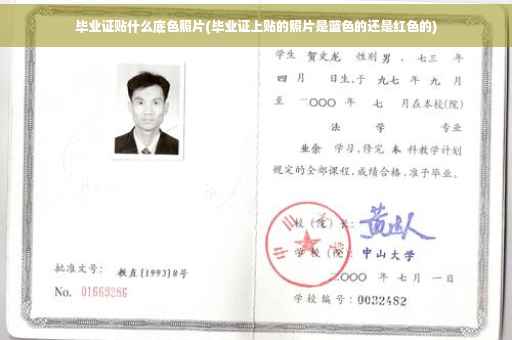 毕业证贴什么底色照片(毕业证上贴的照片是蓝色的还是红色的)
学生 贺文龙 性别 男 、七三 年
四 月 日生,于 九七 年 九 月
至 二〇〇〇 年 七 月在本校(院)
法 学 专业
业余 学习,修完 本 科教学计划
规定的全部课程,成绩合格,准予毕业。
校(院)长:
学校(院): 中山大学
二〇〇〇 年 七 月 一 日
学校编号: 0032482
批准文号: 教直(1993)8号
No. 01669286